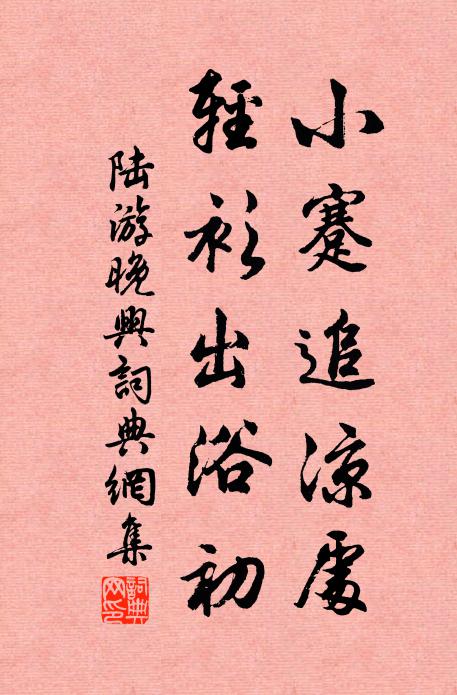 小蹇追涼處
輕衫出浴初
陸游晚興詞典網集
詞典网印